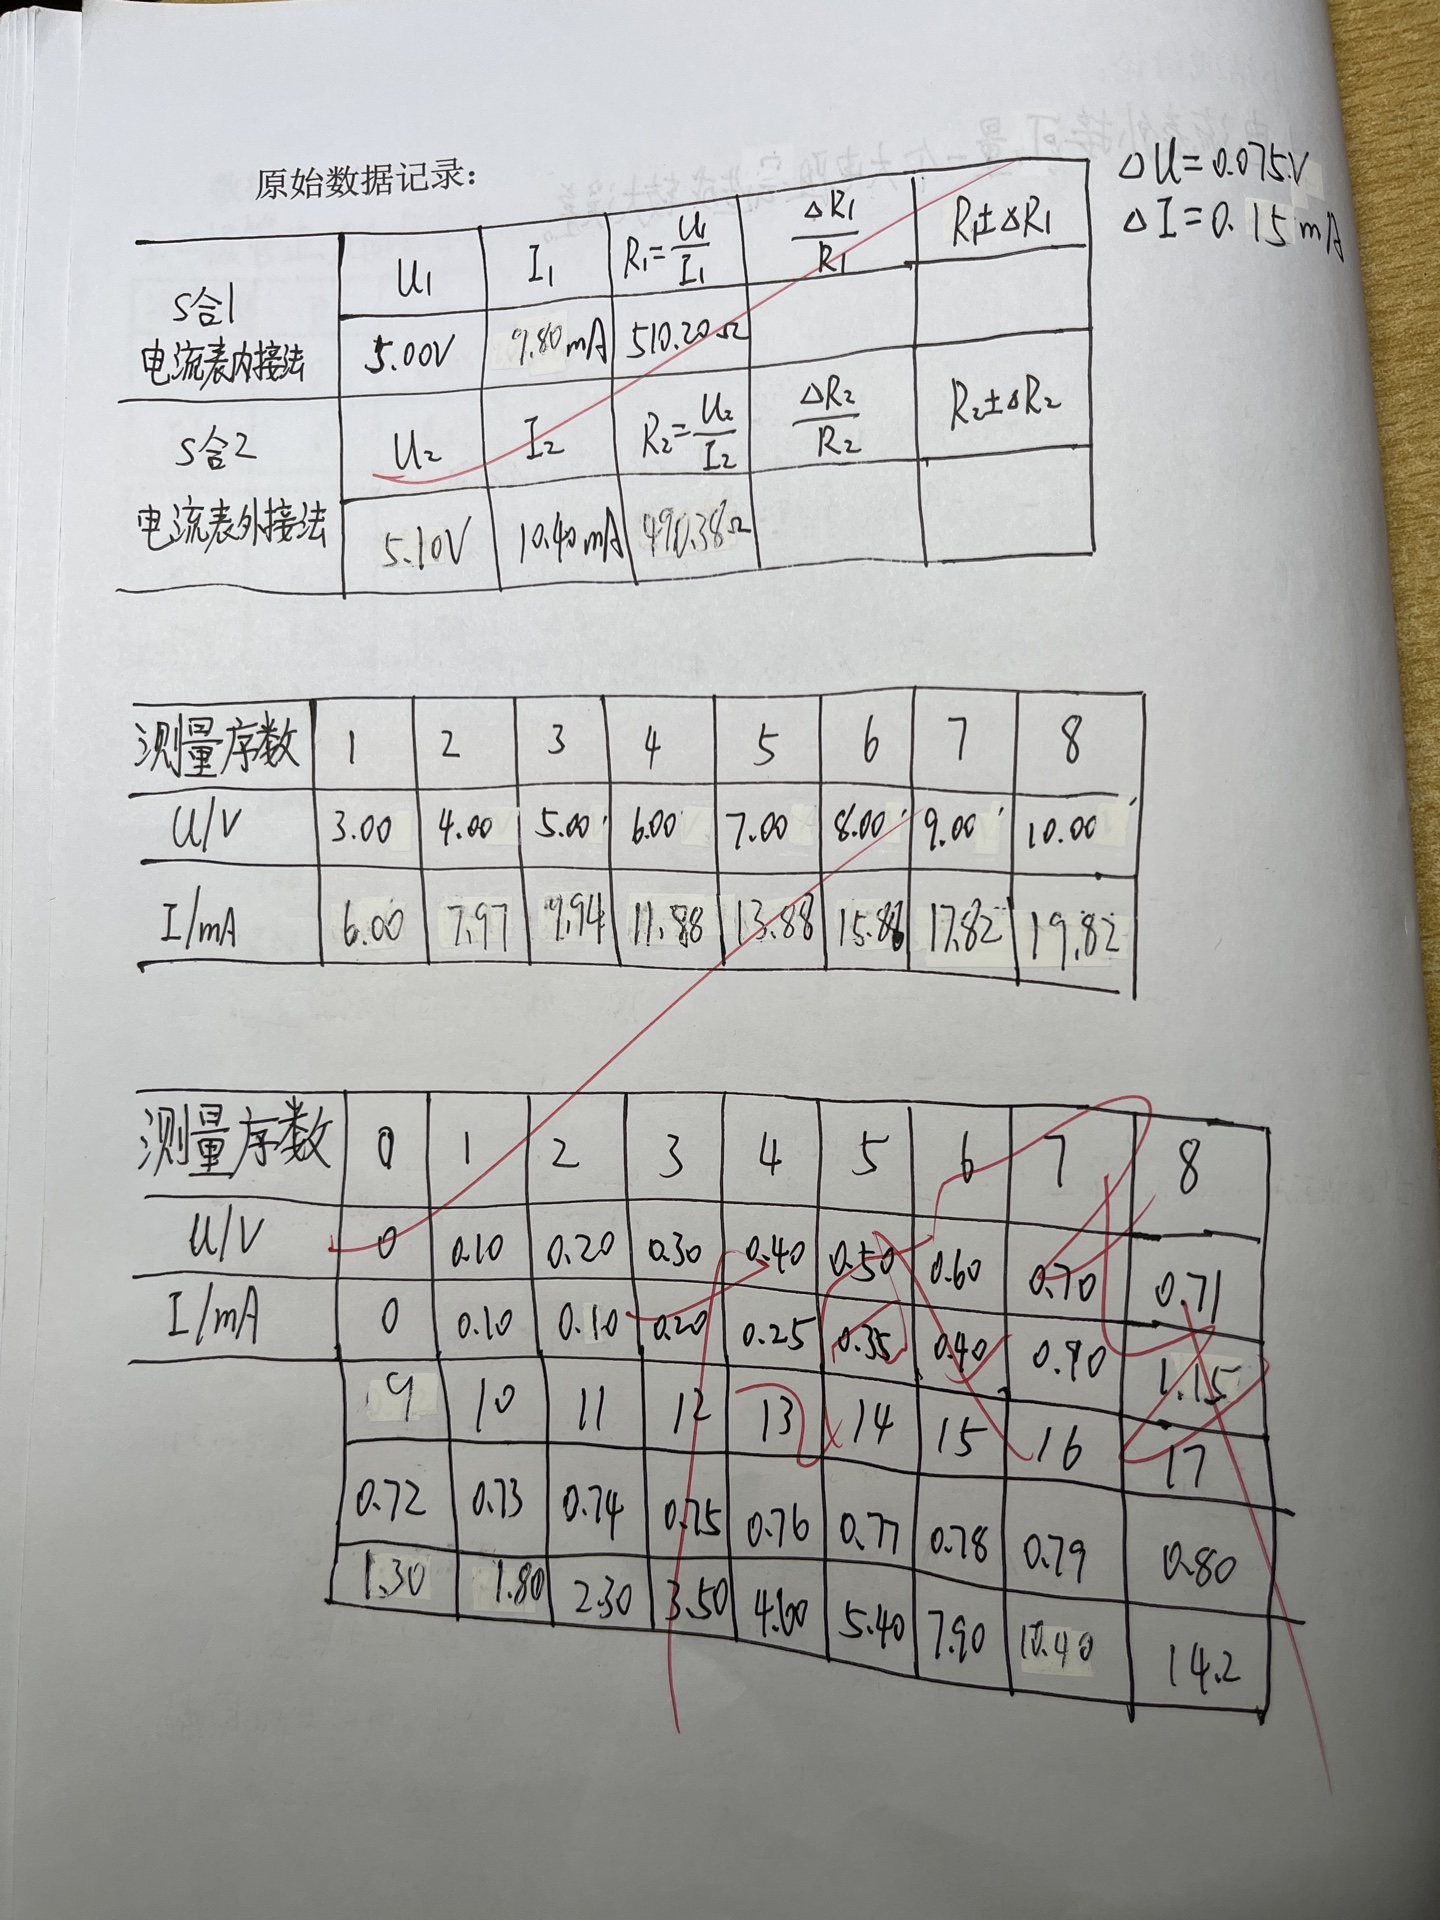 原始数据记录:
ΔU=0.075V
ΔI=0.15mA
S合1 电流表内接法 U₁ I₁ R₁=U₁/I₁ ΔR₁/R₁ R₁±ΔR₁
5.00V 9.80mA 510.20Ω
S合2 电流表外接法 U₂ I₂ R₂=U₂/I₂ ΔR₂/R₂ R₂±ΔR₂
5.10V 10.40mA 490.38Ω
测量序数 1 2 3 4 5 6 7 8
U/V 3.00 4.00 5.00 6.00 7.00 8.00 9.00 10.00
I/mA 6.00 7.97 9.94 11.88 13.88 15.88 17.82 19.82
测量序数 0 1 2 3 4 5 6 7 8
U/V 0 0.10 0.20 0.30 0.40 0.50 0.60 0.70 0.71
I/mA 0 0.10 0.10 0.20 0.25 0.35 0.40 0.90 1.15
9 10 11 12 13 14 15 16 17
0.72 0.73 0.74 0.75 0.76 0.77 0.78 0.79 0.80
1.30 1.80 2.30 3.50 4.00 5.40 7.90 10.40 14.2